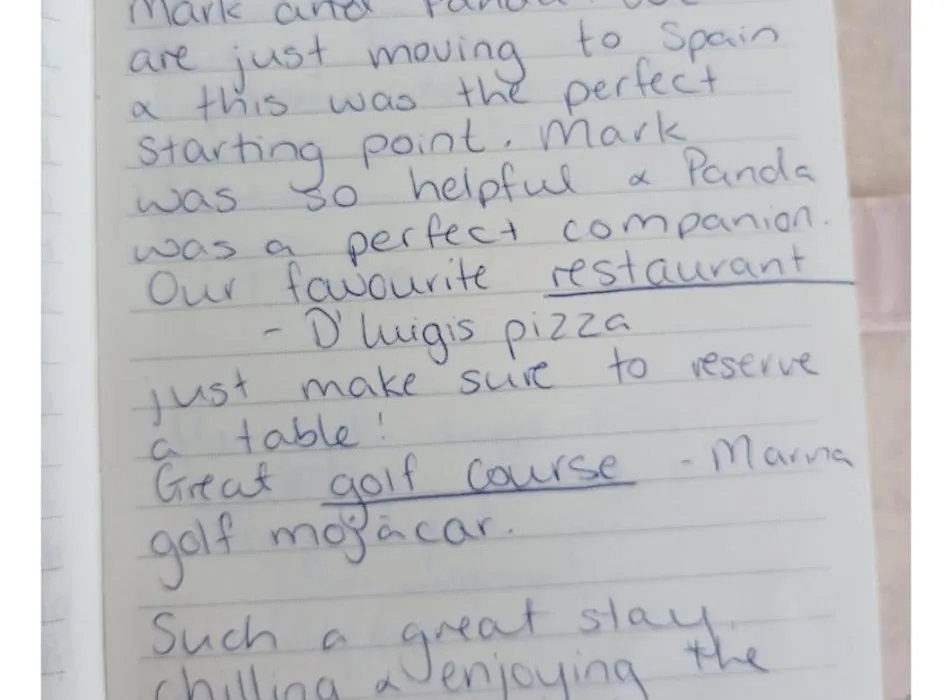 Mark and Panda. We
are just moving to Spain
& this was the perfect
starting point. Mark
was so helpful & Panda
was a perfect companion.
Our favourite restaurant
- D'luigis pizza
just make sure to reserve
a table!
Great golf course - Marina
golf mojácar.
Such a great stay
chilling & enjoying the